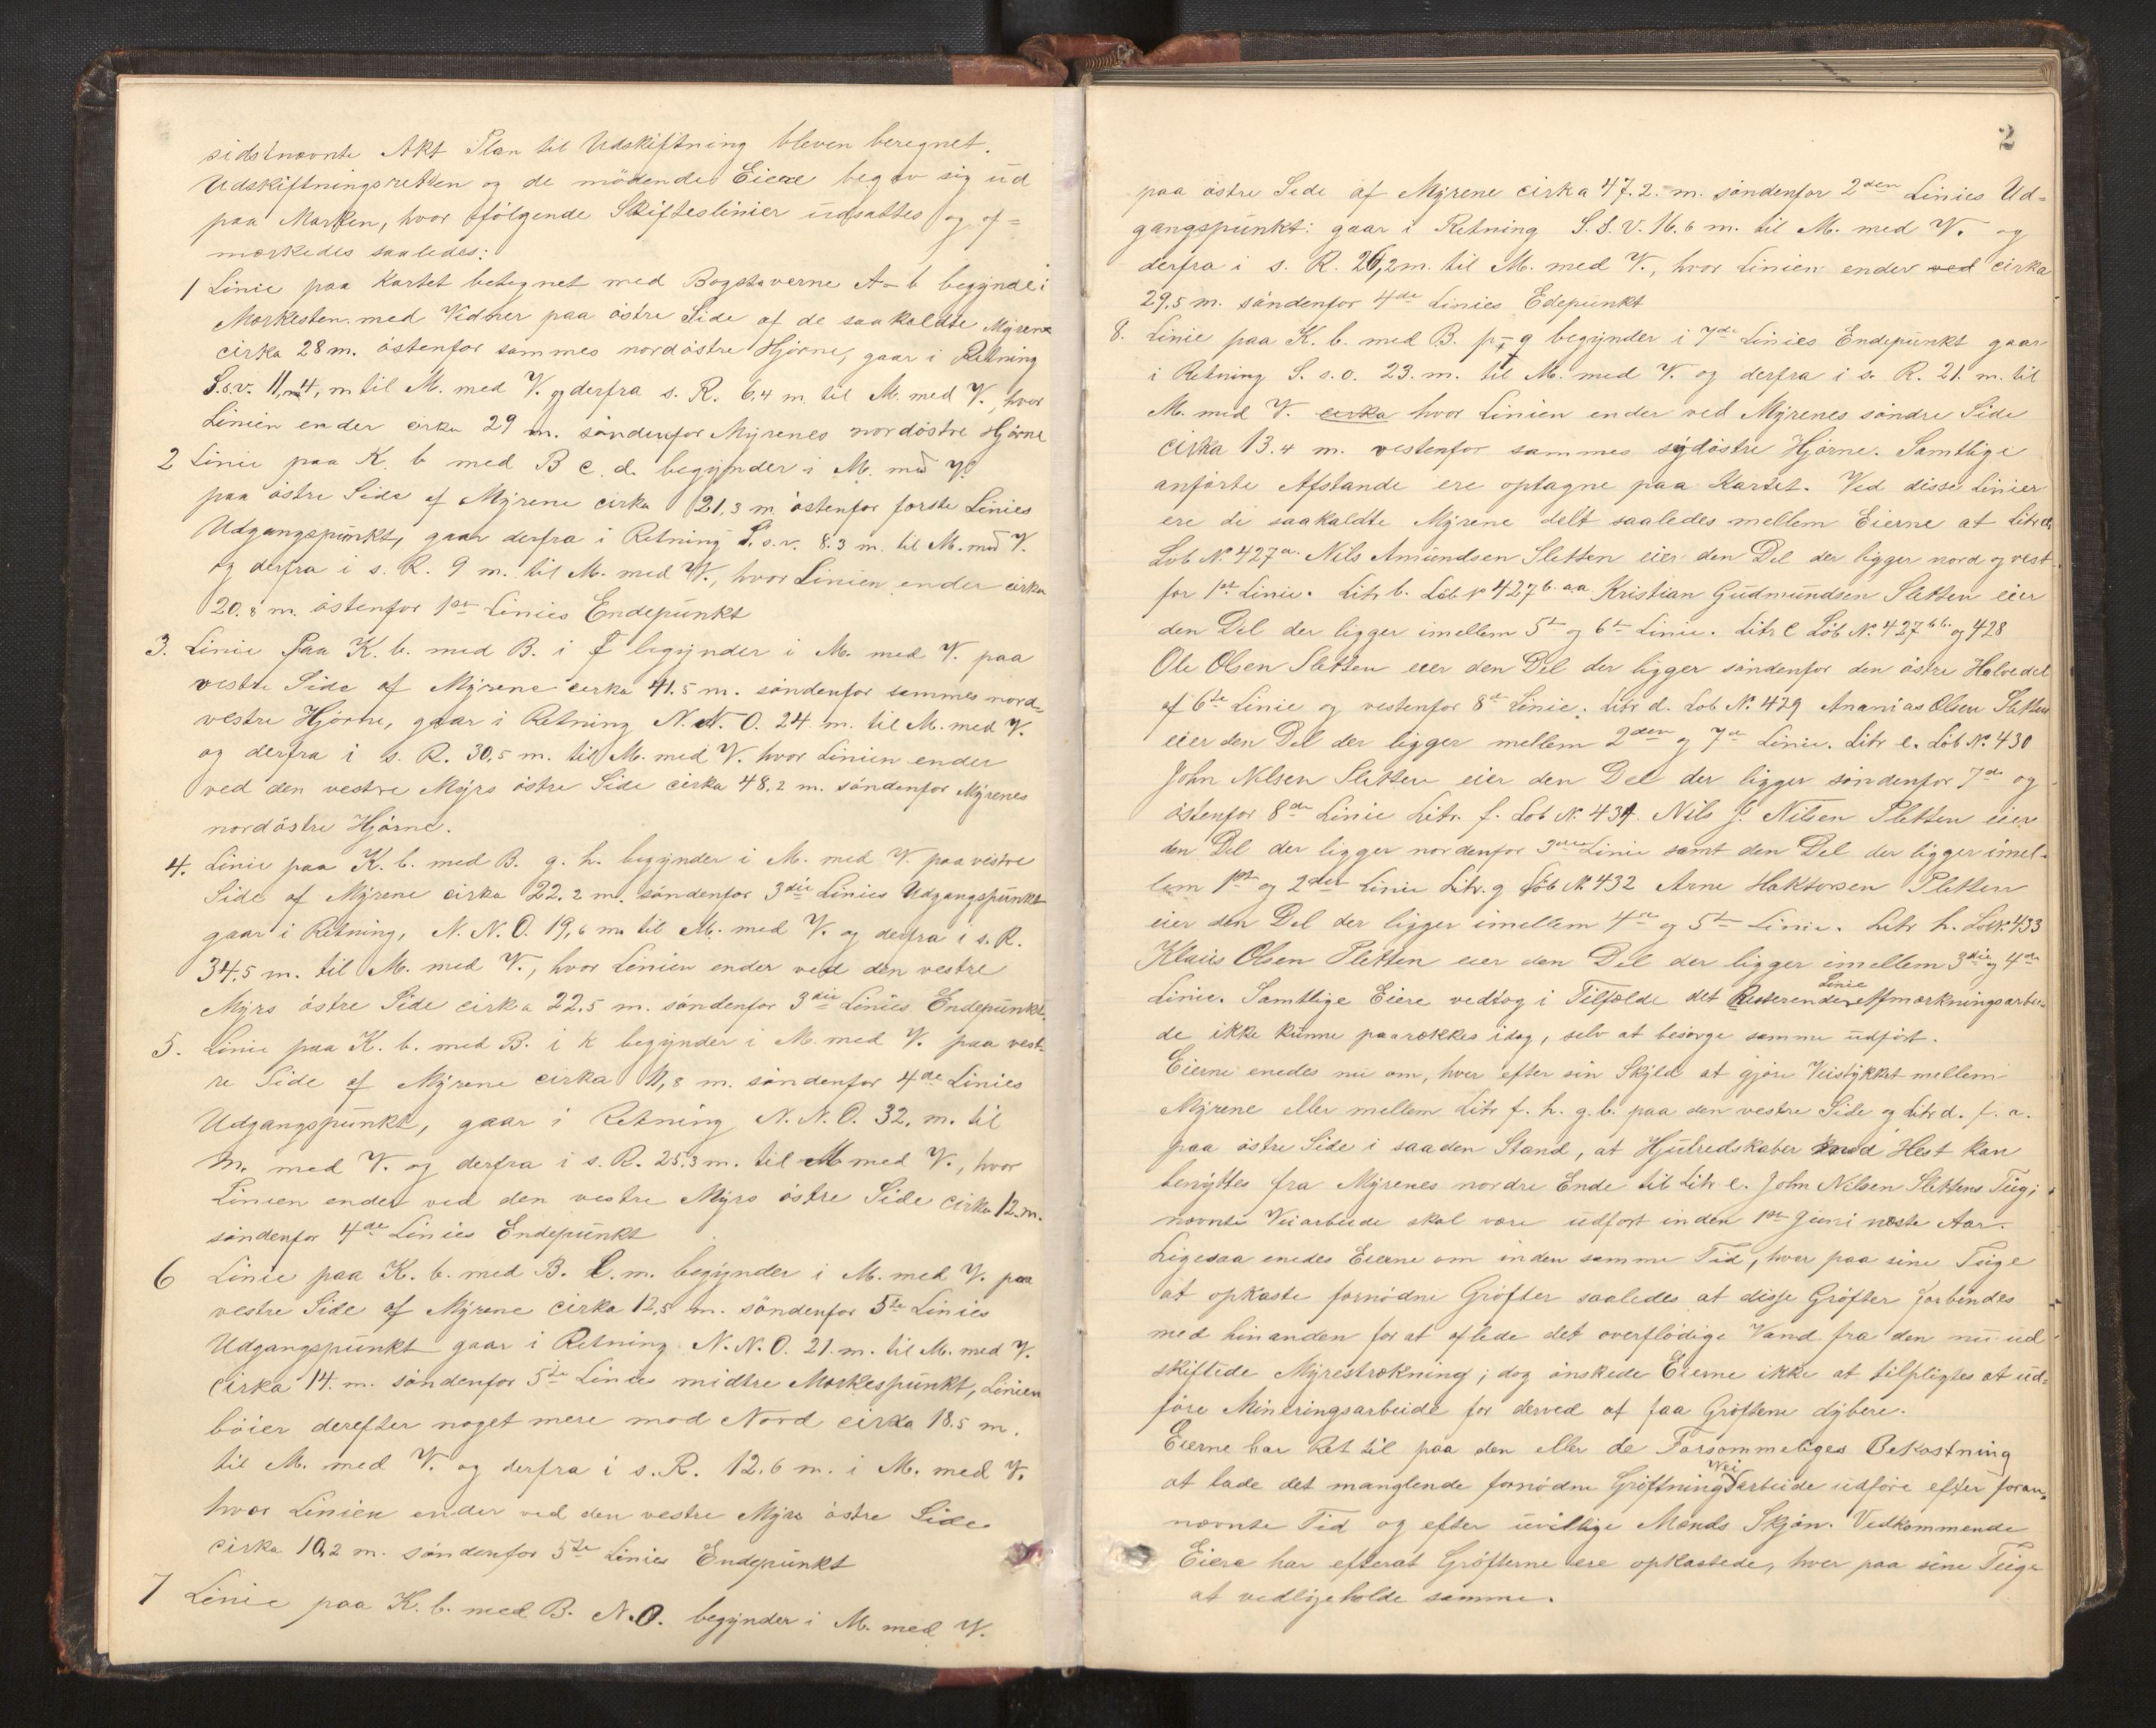 sidstnævnte Akt Plan til Udskiftning bleven beregnet.
Udskiftningsretten og de mödende Eiere begav sig ud
paa Marken, hvor fölgende Skifteslinier udsattes og af=
mærkedes saaledes:
1 Linie paa Kartet betegnet med Bogstaverne A-b begynde i
Merkesten med Vidner paa östre Side af de saakaldte Myrene
cirka 28 m. östenfor sammes nordöstre Hjörne, gaar i Retning
S.s.v. 11,4, m til M. med V. og derfra s. R. 6,4 m. til M. med V., hvor
Linien ender cirka 29 m. söndenfor Myrenes nordöstre Hjörne
2 Linie paa K. b med B c. d. begynder i M. med V.
paa östre Side af Myrene cirka 21,3 m. östenfor förste Linies
Udgangspunkt, gaar derfra i Retning S.s.v. 8.3 m. til M. med V.
og derfra i s. R. 9 m. til M. med V., hvor Linien ender cirka
20.8 m. östenfor 1ste Linies Endepunkt
3. Linie paa K. b. med B. i f begynder i M. med V. paa
vestre Side af Myrene cirka 41.5 m. söndenfor sammes nord=
vestre Hjörne, gaar i Retning N. N. O. 24 m. til M. med V.
og derfra i s. R. 30,5 m. til M. med V. hvor Linien ender
ved den vestre Myrs östre Side cirka 48,2 m. söndenfor Myrenes
nordöstre Hjörne.
4. Linie paa K. b. med B. g. h. begynder i M. med V. paa vestre
Side af Myrene cirka 22.2 m. söndenfor 3die Linies Udgangspunkt
gaar i Retning, N. N. O. 19,6 m. til M. med V. og derfra i s. R.
34,5 m. til M. med V., hvor Linien ender ved den vestre
Myrs östre Side cirka 22,5 m. söndenfor 3die Linies Endepunkt.
5. Linie paa K. b. med B. i k begynder i M. med V. paa vest=
re Side af Myrene cirka 11,8 m. söndenfor 4de Linies
Udgangspunkt, gaar i Retning N. N. O. 32. m. til
M. med V. og derfra i s. R. 25.3 m. til M med V., hvor
Linien ender ved den vestre Myrs östre Side cirka 12. m.
söndenfor 4de Linies Endepunkt
6 Linie paa K. b. med B. l. m. begynder i M. med V. paa
vestre Side af Myrene cirka 12,5 m. söndenfor 5te Linies
Udgangspunkt gaar i Retning N. N. O. 21. m. til M. med V.
cirka 14. m. söndenfor 5te Linies midtre Merkespunkt, Linien
böier derefter noget mere mod Nord cirka 18.5 m.
til M. med V. og derfra i s. R. 12.6 m. i M. med V.
hvor Linien ender ved den vestre Myrs östre Side
cirka 10,2 m. söndenfor 5te Linies Endepunkt
7 Linie paa K. b. med B. N. O. begynder i M. med V.
2
paa östre Side af Myrene cirka 47.2. m. söndenfor 2den Linies Ud=
gangspunkt: gaar i Retning S. S. V. 16.6 m. til M. med V. og
derfra i s. R. 26,2 m. til M. med V., hvor Linien ender ved cirka
29,5 m. söndenfor 4de Linies Edepunkt
8. Linie paa K. b. med B. p-q begynder i 7de Linies Endepunkt gaar
i Retning S. s. o. 23. m. til M. med V. og derfra i s. R. 21. m. til
M. med V. cirka hvor Linien ender ved Myrenes söndre Side
cirka 13.4 m. vestenfor sammes sydöstre Hjörne. Samtlige
anförte Afstande ere optagne paa Kartet. Ved disse Linier
ere de saakaldte Myrene delt saaledes mellem Eierne at Litr a.
Löb No 427 a. Nils Amundsen Sletten eier den Del der ligger nord og vest
for 1ste Linie. Litr b. Löb No 427 b. aa. Kristian Gudmundsen Sletten eier
den Del der ligger imellem 5te og 6te Linie. Litr c Löb No. 427 bb. og 428
Ole Olsen Sletten eier den Del der ligger söndenfor den östre Halvedel
af 6te Linie og vestenfor 8de Linie. Litr d. Löb No. 429 Ananias Olsen Sletten
eier den Del der ligger mellem 2den og 7de Linie. Litr e. Löb No. 430
John Nilsen Sletten eier den Del der ligger söndenfor 7de og
östenfor 8de Linie Litr. f. Löb No. 431. Nils J. Nilsen Sletten eier
den Del der ligger nordenfor 3die Linie samt den Del der ligger imel-
lem 1ste og 2den Linie Litr. g Löb No. 432 Arne Haktorsen Sletten
eier den Del der ligger imellem 4de og 5te Linie. Litr h. Löb No. 433
Klaus Olsen Sletten eier den Del der ligger imellem 3die og 4de
Linie. Samtlige Eiere vedtog i Tilfælde det Resterende Linie Afmærkningsarbei=
de ikke kunne paarækkes idag, selv at besörge samme udfört.
Eierne enedes nu om, hver efter sin Skyld at gjöre Veistykket mellem
Myrene eller mellem Litr f. h. g. b. paa den vestre Side og Litr d. f. a.
paa östre Side i saaden Stand, at Hjulredskaber med Hest kan
benyttes fra Myrenes nordre Ende til Litr e. John Nilsen Slettens Teig;
nævnte Veiarbeide skal være udfört inden 1ste Juni næste Aar.
Ligesaa enedes Eierne om inden samme Tid, hver paa sine Teige
at opkaste fornödne Gröfter saaledes at disse Gröfter forbindes
med hinanden for at aflede det overflödige Vand fra den nu ud
skiftede Myrestrækning; dog önskede Eierne ikke at tilpligtes at ud=
före Mineringsarbeide for derved at faa Gröftene dybere.
Eierne har Ret til paa den eller de Forsömmeliges Bekostning
at lade det manglende fornödne Gröftning Vei arbeide udföre efter foran=
nævnte Tid og efter uvillige Mænds Skjön. Vedkommende
Eiere har efterat Gröfterne ere opkastede, hver paa sine Teige
at vedligeholde samme.